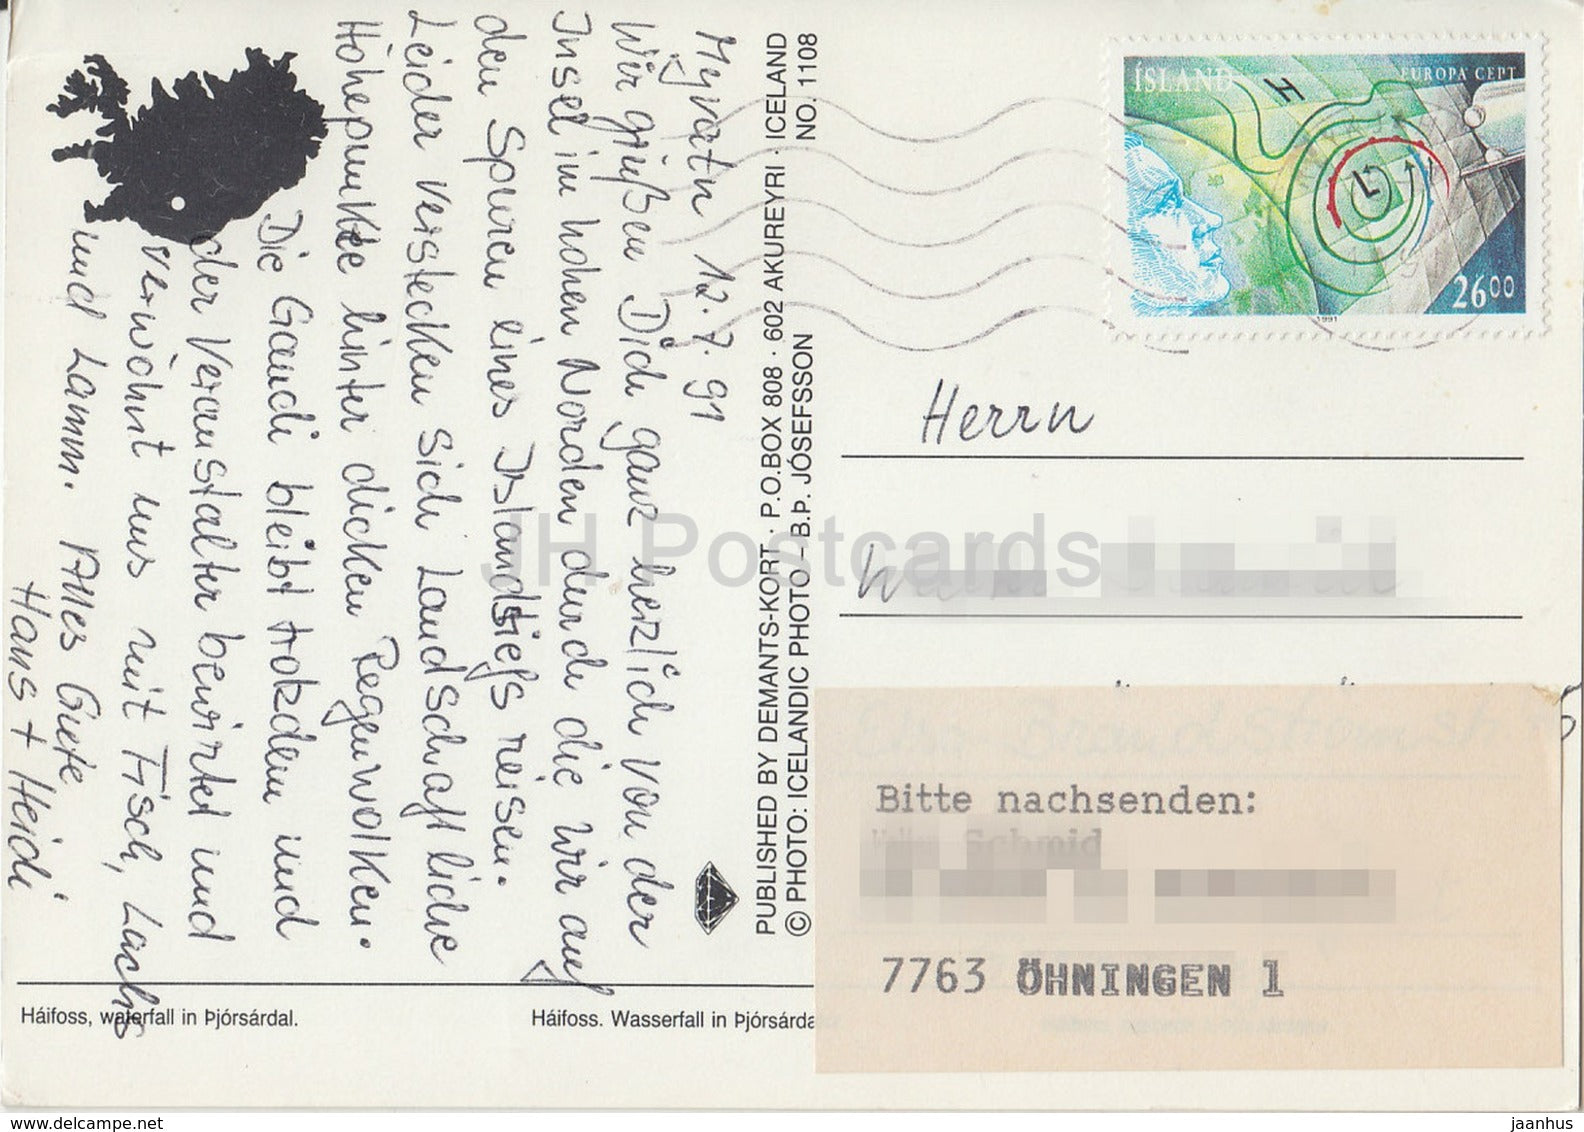 Myvatn 12.7.91
Wir grüßen Dich ganz herzlich von der
Insel im hohen Norden durch die wir auf
den Spuren eines Islandtiefs reisen.
Leider verstecken sich Landschaftliche
Höhepunkte hinter dicken Regenwolken.
Die Gaudi bleibt trotzdem und
der Veranstalter bewirtet und
verwöhnt uns mit Fisch, Lachs
und Lamm. Alles Gute
Hans + Heidi
PUBLISHED BY DEMANTS-KORT · P.O.BOX 808 · 602 AKUREYRI · ICELAND
© PHOTO: ICELANDIC PHOTO – B.Þ. JÓSEFSSON NO. 1108
Háifoss, waterfall in Þjórsárdal.
Háifoss. Wasserfall in Þjórsárda
ÍSLAND
EUROPA CEPT
H
L
26 00
1991
Herrn
Bitte nachsenden:
Schmid
7763 ÖHNINGEN 1
JH Postcards
www.delcampe.net
jaanhus